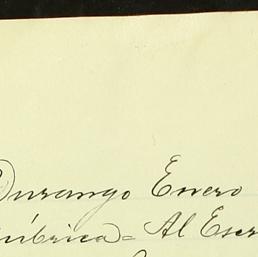 Durango Enero
rúbrica= Al Escr